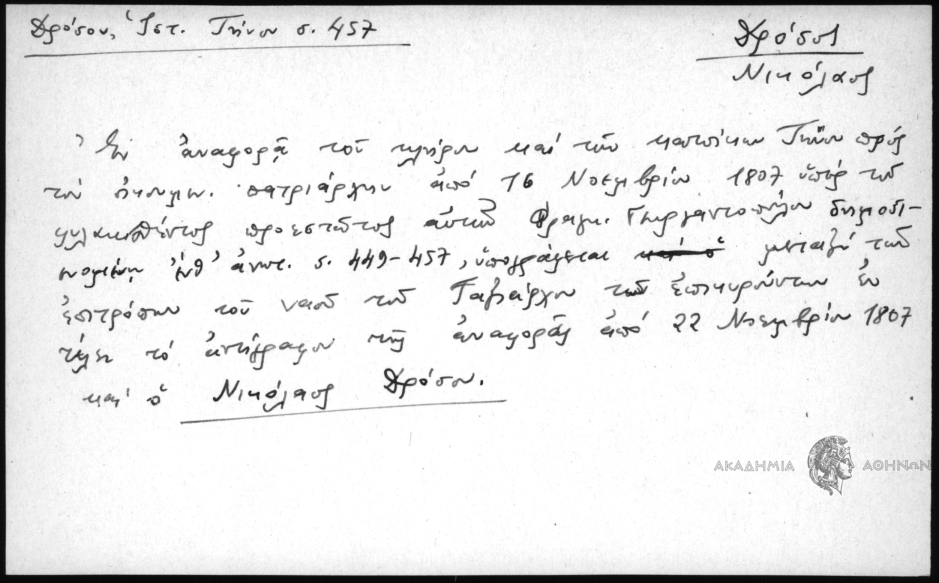 Δρόσου, Ἱστ. Τήνου σ. 457
Δρόσος
Νικόλαος
Ἐν ἀναφορᾷ τοῦ κλήρου καὶ τῶν κατοίκων Τήνου πρὸς
τὸν οἰκουμεν. πατριάρχην ἀπὸ 16 Νοεμβρίου 1807 ὑπὲρ τοῦ
φυλακισθέντος προεστῶτος αὐτῶν Φραγκ. Γεωργαντοπούλου δημοσι-
ευομένῃ ἐνθ' ἀνωτ. σ. 449-457, ὑπογράφεται καὶ ὁ μεταξὺ τῶν
ἐπιτρόπων τοῦ ναοῦ τῶν Ταξιάρχων τῶν ἐπικυρούντων ἐν
τέλει τὸ ἀντίγραφον τῆς ἀναφορᾶς ἀπὸ 22 Νοεμβρίου 1807
καὶ ὁ Νικόλαος Δρόσου.
ΑΚΑΔΗΜΙΑ ΑΘΗΝΩΝ